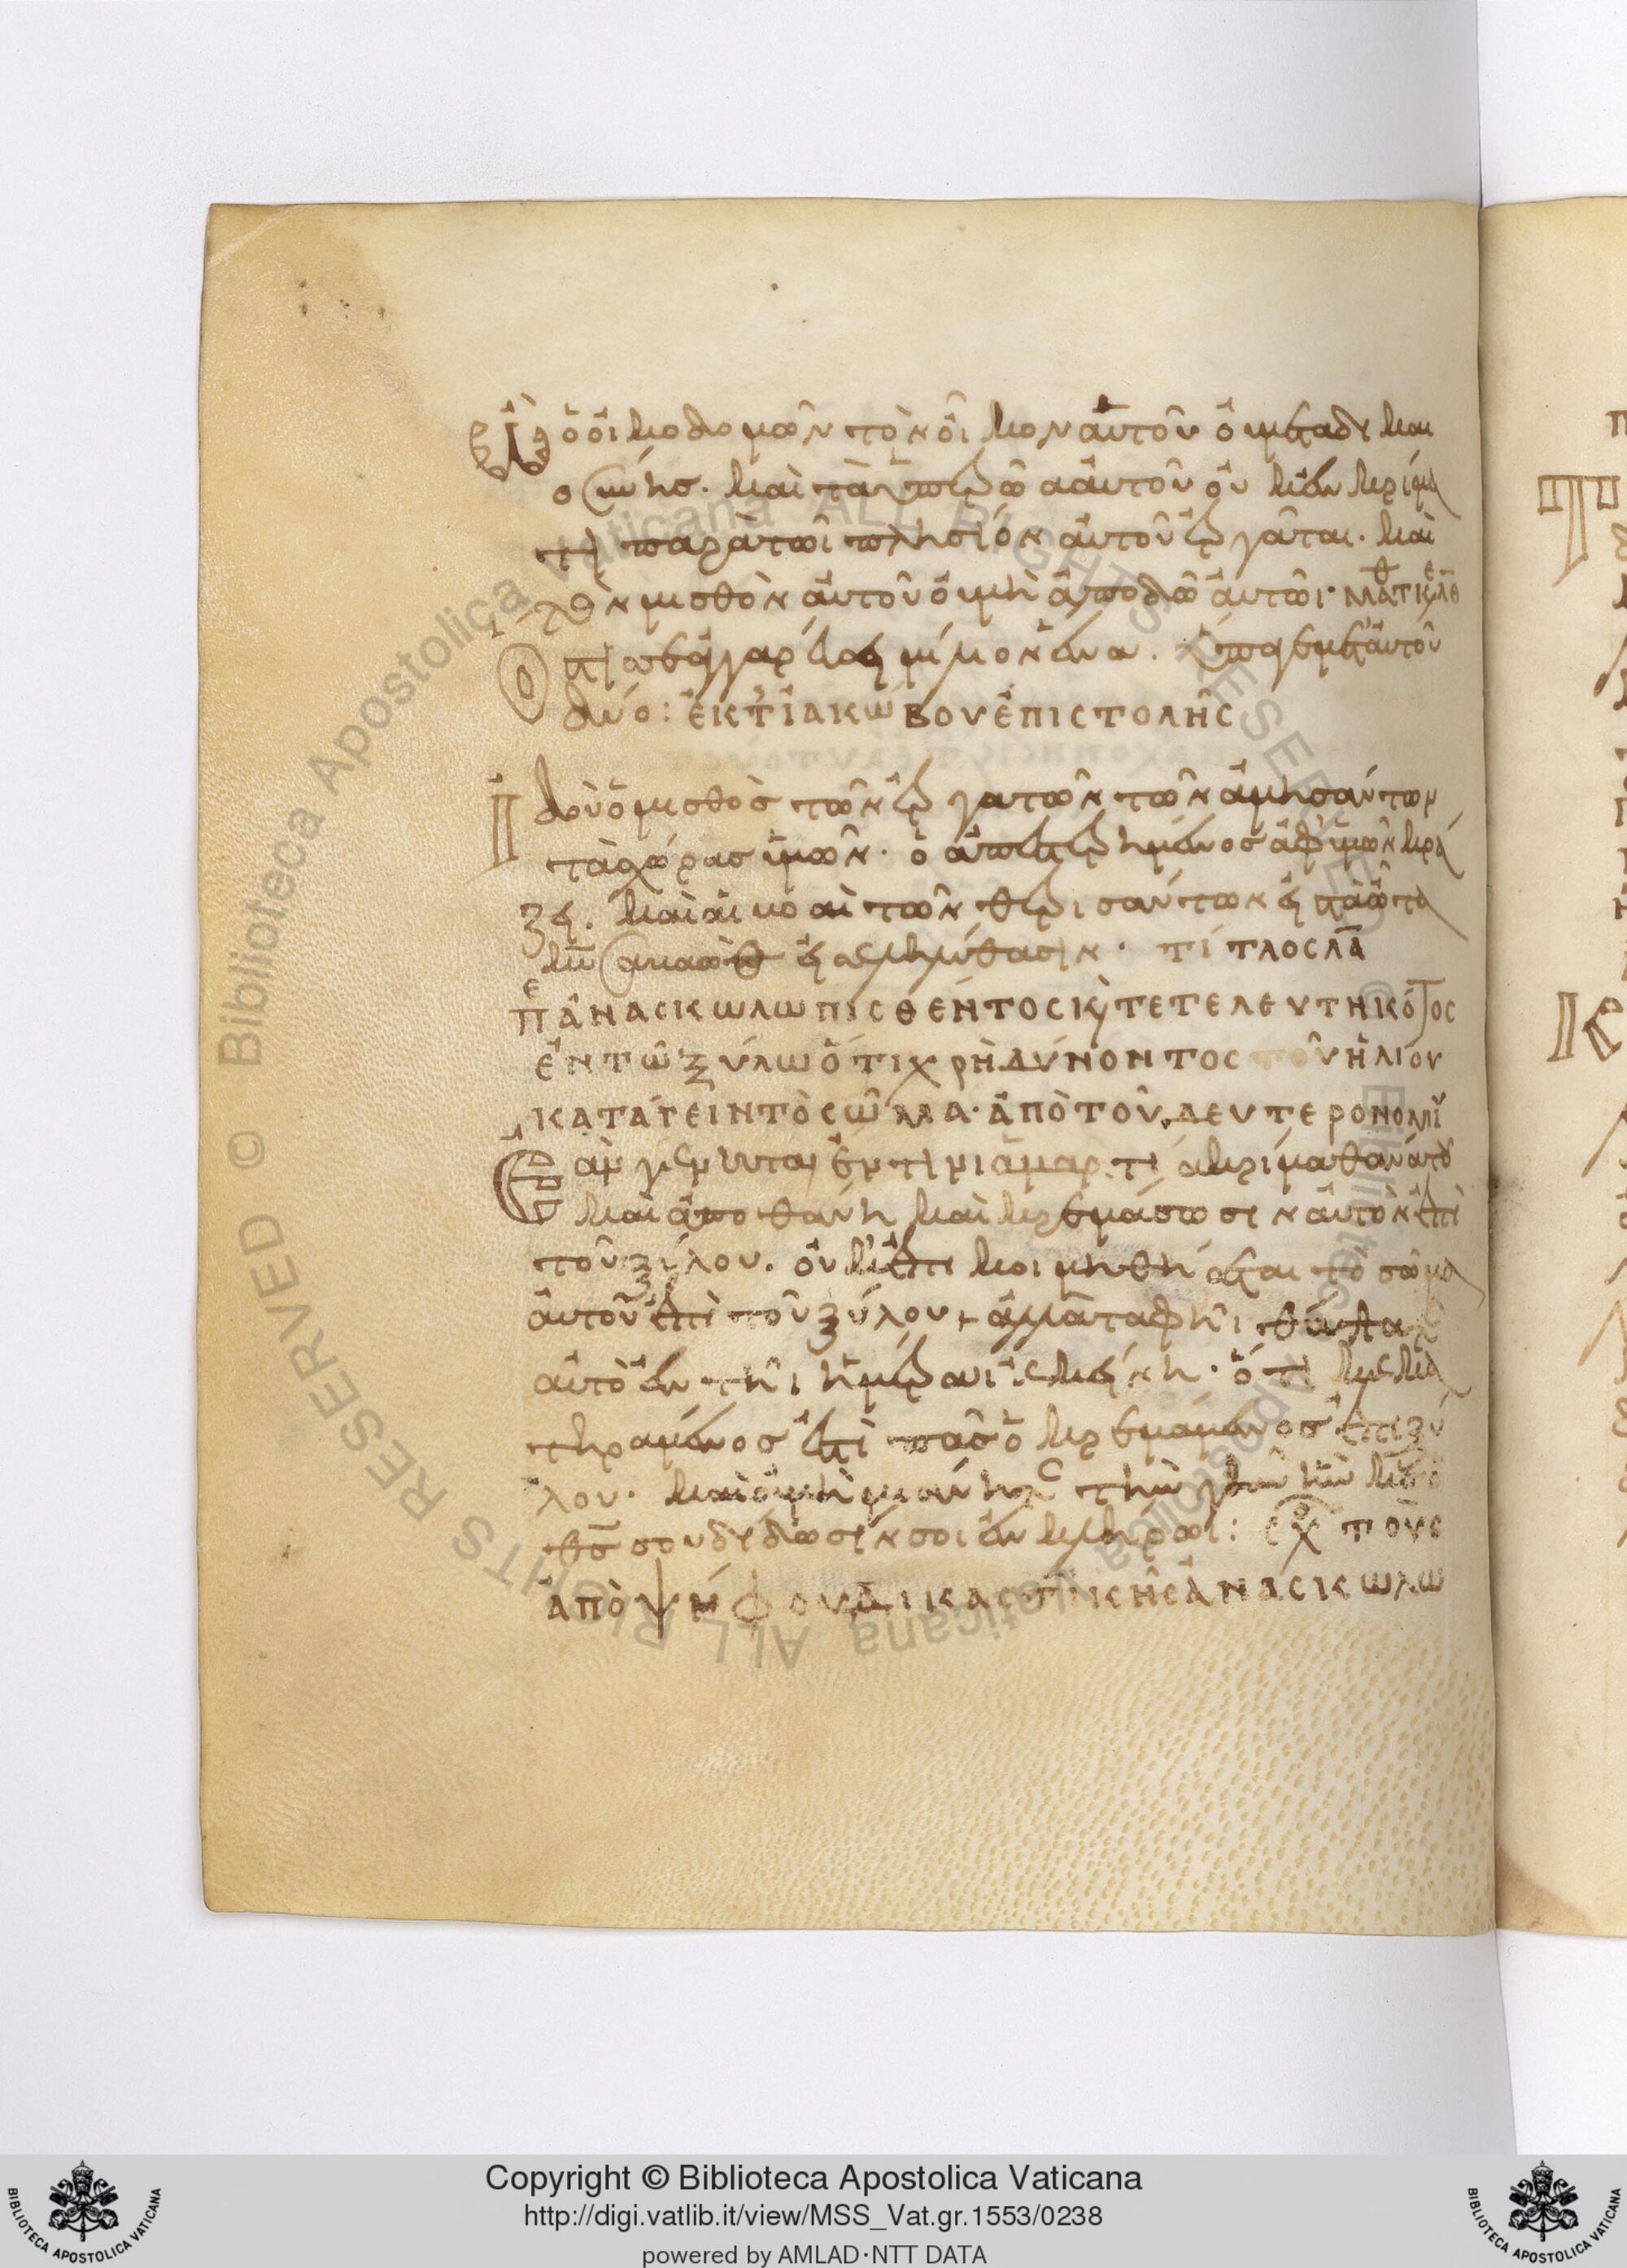 Ὦ ὁ οἰκοδομῶν τὸν οἶκον αὐτοῦ οὐ μετα δικαι
οσύνης. καὶ τὰ ὑπερῶα αὐτοῦ οὐκ ἐν κρίμα
τι παρὰ τῶι πλησίον αὐτοῦ ἐργᾶται. καὶ
τὸν μισθὸν αὐτοῦ οὐ μὴ ἀποδῶ αὐτῶι·
δύο: ἐκ τ ἰακώβου ἐπιστολῆς
Ἰδοὺ ὁ μισθὸς τῶν ἐργατῶν τῶν ἀμησάντων
τὰς χώρας ὑμῶν· ὁ ἀπεστερημένος ἀφ ὑμῶν κρά
ζει. καὶ αἱ βοαὶ τῶν θερισάντων εἰς τὰ ὦτα
κυ σαβαὼθ εἰσεληλύθασιν· τίτλος λα
πε ἀνασκωλωπισθέντος κὶ τετελευτηκότος
ἐν τῶ ξύλω ὅτι χρὴ δύνοντος τοῦ ἡλίου
καταγειν τὸ σῶμα· ἀπὸ τοῦ δευτερονομίου
Ἐὰν γένηται ἔν τινι ἁμαρτία κρίμα θανάτου
καὶ ἀποθάνη καὶ κρεμάσωσιν αὐτὸν ἐπὶ
τοῦ ξύλου. οὐκ ἐπικοιμηθήσεται τὸ σῶμα
αὐτοῦ ἐπὶ τοῦ ξύλου· ἀλλα ταφῆι θάψατε
αὐτὸ ἐν τῆι ἡμέρα ἐκείνη· ὅτι κεκα
τηραμένος ἐπὶ πᾶς ὁ κρεμάμενος ἐπι ξύ
λου· καὶ οὐ μὴ μιάνητε τὴν γῆν ἣν κς ὁ
θς σου δίδωσίν σοι ἐν κλήρωι: πους
ἀπὸ ψήφου δικαστικῆς ἀνασκωλω
Copyright © Biblioteca Apostolica Vaticana
http://digi.vatlib.it/view/MSS_Vat.gr.1553/0238
powered by AMLAD·NTT DATA